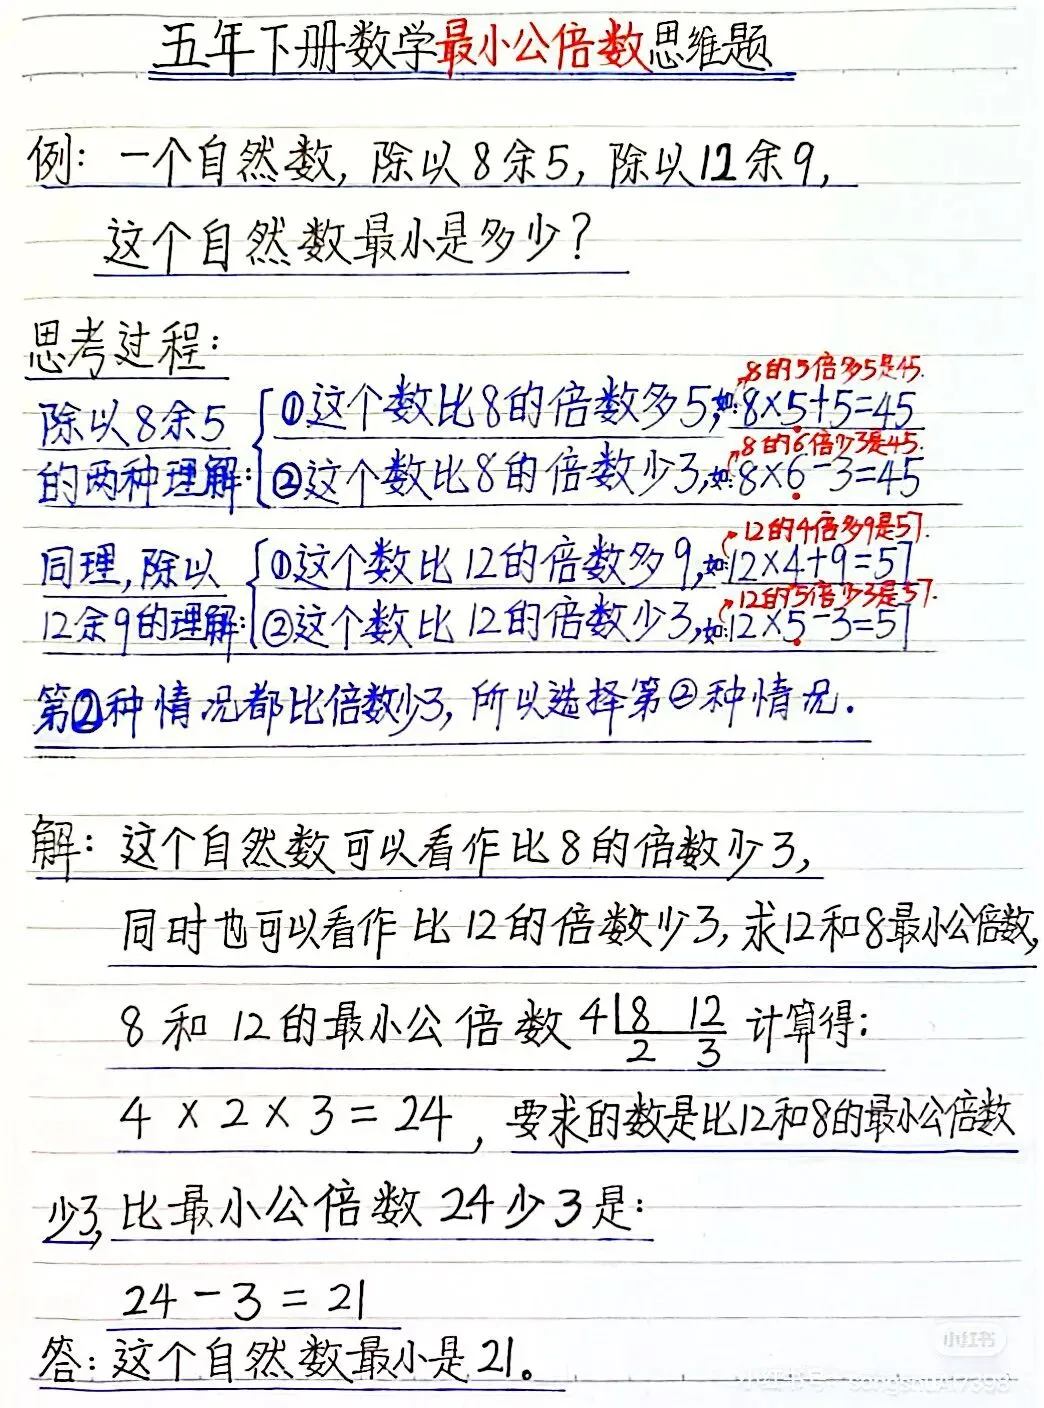 五年下册数学最小公倍数思维题
例：一个自然数，除以8余5，除以12余9，
这个自然数最小是多少？
思考过程：
8的5倍多5是45.
除以8余5
的两种理解：
①这个数比8的倍数多5，如：8×5+5=45
8的6倍少3是45.
②这个数比8的倍数少3，如：8×6-3=45
12的4倍多9是57.
同理，除以
12余9的理解：
①这个数比12的倍数多9，如：12×4+9=57
12的5倍少3是57.
②这个数比12的倍数少3，如：12×5-3=57
第②种情况都比倍数少3，所以选择第②种情况.
解：这个自然数可以看作比8的倍数少3，
同时也可以看作比12的倍数少3，求12和8最小公倍数，
8和12的最小公倍数 4 8 12 计算得：
2 3
4×2×3=24，要求的数是比12和8的最小公倍数
少3，比最小公倍数24少3是：
24-3=21
答：这个自然数最小是21。
小红书